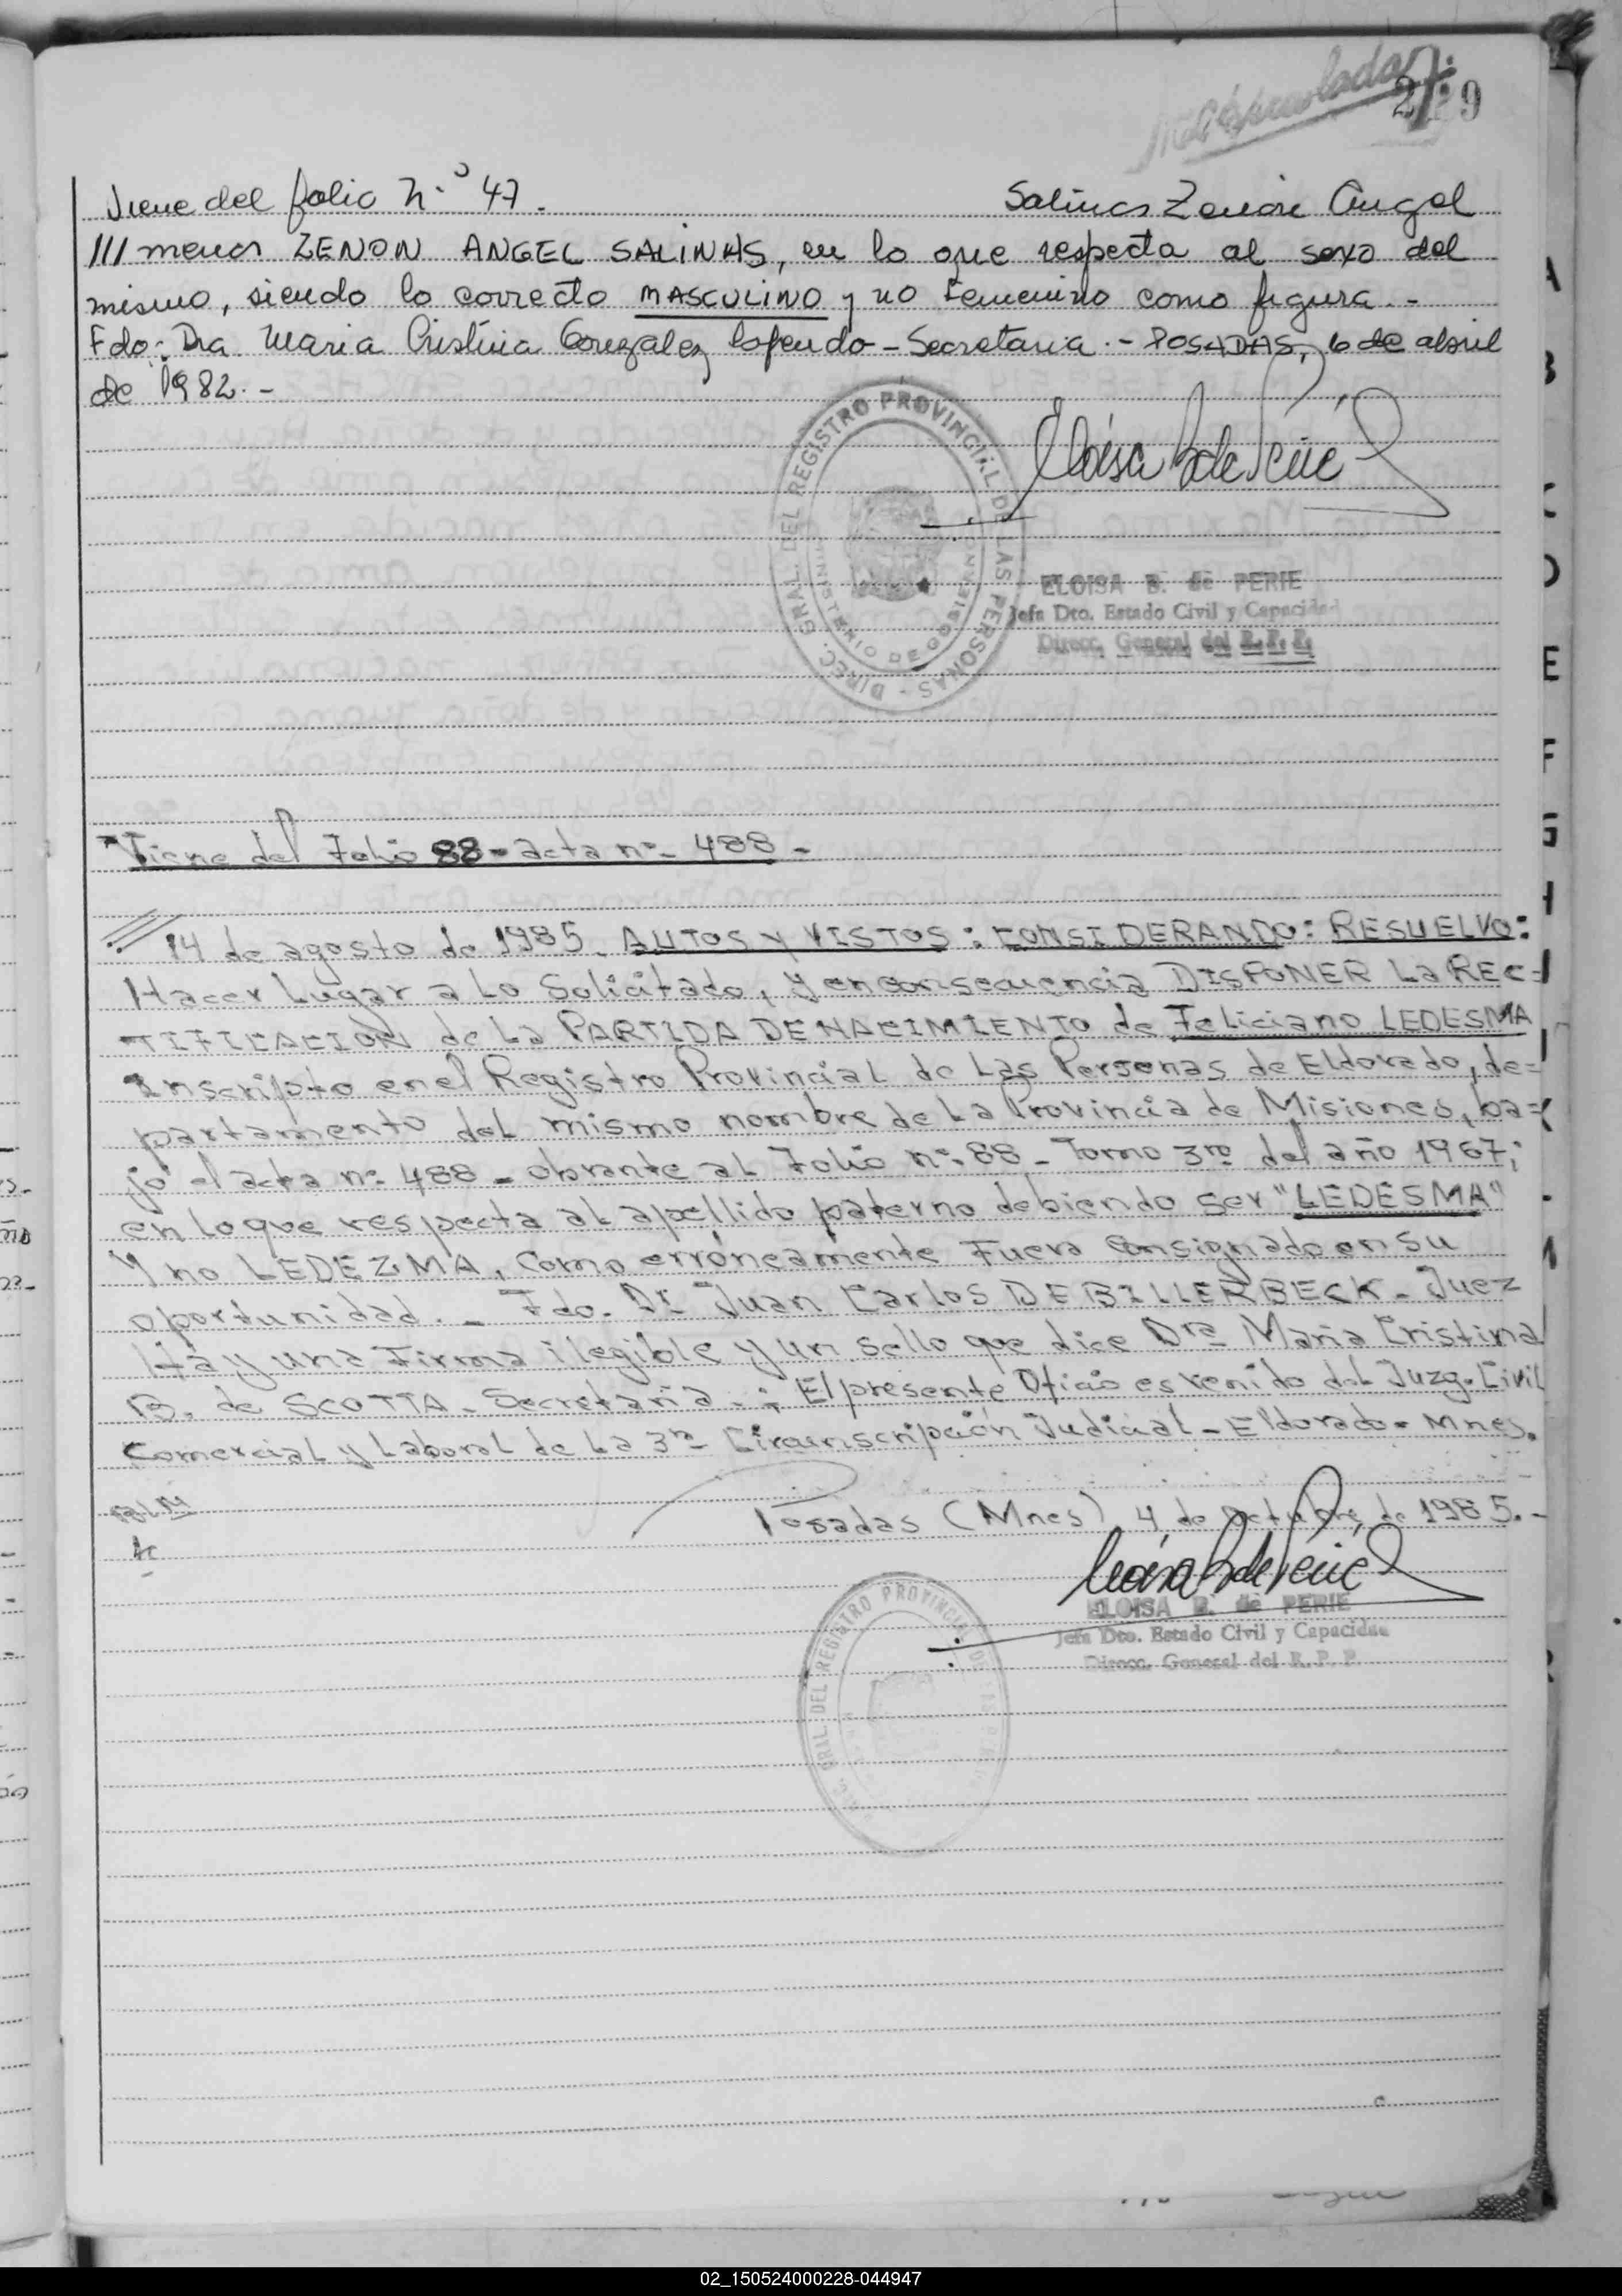 Viene del folio N.º 47. Salinas Zenón Angel
/// menor ZENON ANGEL SALINAS, en lo que respecta al sexo del
mismo, siendo lo correcto MASCULINO y no Femenino como figura.-
Fdo: Dra. Maria Cristina Gonzalez Espendo - Secretaria.- POSADAS, 6 de abril
de 1982.-
DIREC. GRAL. DEL REGISTRO PROVINCIAL DE LAS PERSONAS -
MINISTERIO DE GOBIERNO
ELOISA B. de PERIE
Jefa Dto. Estado Civil y Capacidad
Direcc. General del R. P. P.
Viene del Folio 88 - acta nº- 488 -
/// 14 de agosto de 1985. AUTOS Y VISTOS: CONSIDERANDO: RESUELVO:
Hacer Lugar a Lo Solicitado, y en consecuencia DISPONER La REC=
TIFICACION de La PARTIDA DE NACIMIENTO de Feliciano LEDESMA
Inscripto en el Registro Provincial de Las Personas de Eldorado, de=
partamento del mismo nombre de La Provincia de Misiones, ba=
jo el acta nº 488 - obrante al Folio nº 88 - Tomo 3ro del año 1967;
en lo que respecta al apellido paterno debiendo ser "LEDESMA"
Y no LEDEZMA, como erróneamente Fuera consignado en su
oportunidad. - Fdo. Dr. Juan Carlos DE BILLERBECK - Juez
Hay una Firma ilegible y un sello que dice Dra Maria Cristina
B. de SCOTTA - Secretaria.; El presente Oficio es venido del Juzg. Civil
Comercial y Laboral de La 3ra Circunscripción Judicial - Eldorado - Mnes.
Posadas (Mnes) 4 de octubre de 1985.-
ELOISA B. de PERIE
Jefa Dto. Estado Civil y Capacidad
Direcc. General del R. P. P.
02_150524000228-044947